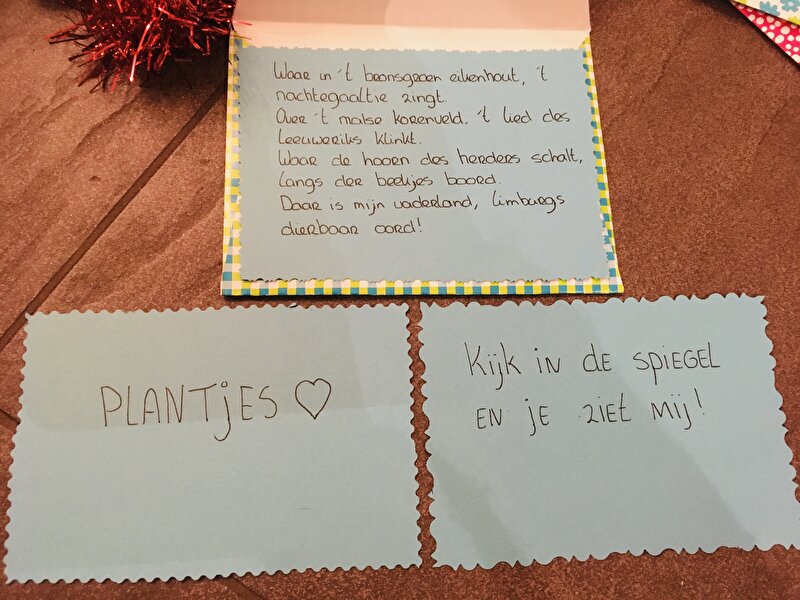 Waar in 't bronsgroen eikenhout, 't
nachtegaaltje zingt.
Over 't malse korenveld, 't lied des
leeuweriks klinkt.
Waar de hoorn des herders schalt,
langs der beekjes boord.
Daar is mijn vaderland, limburgs
dierbaar oord!
PLANTjES
Kijk in de spiegel
en je ziet mij!